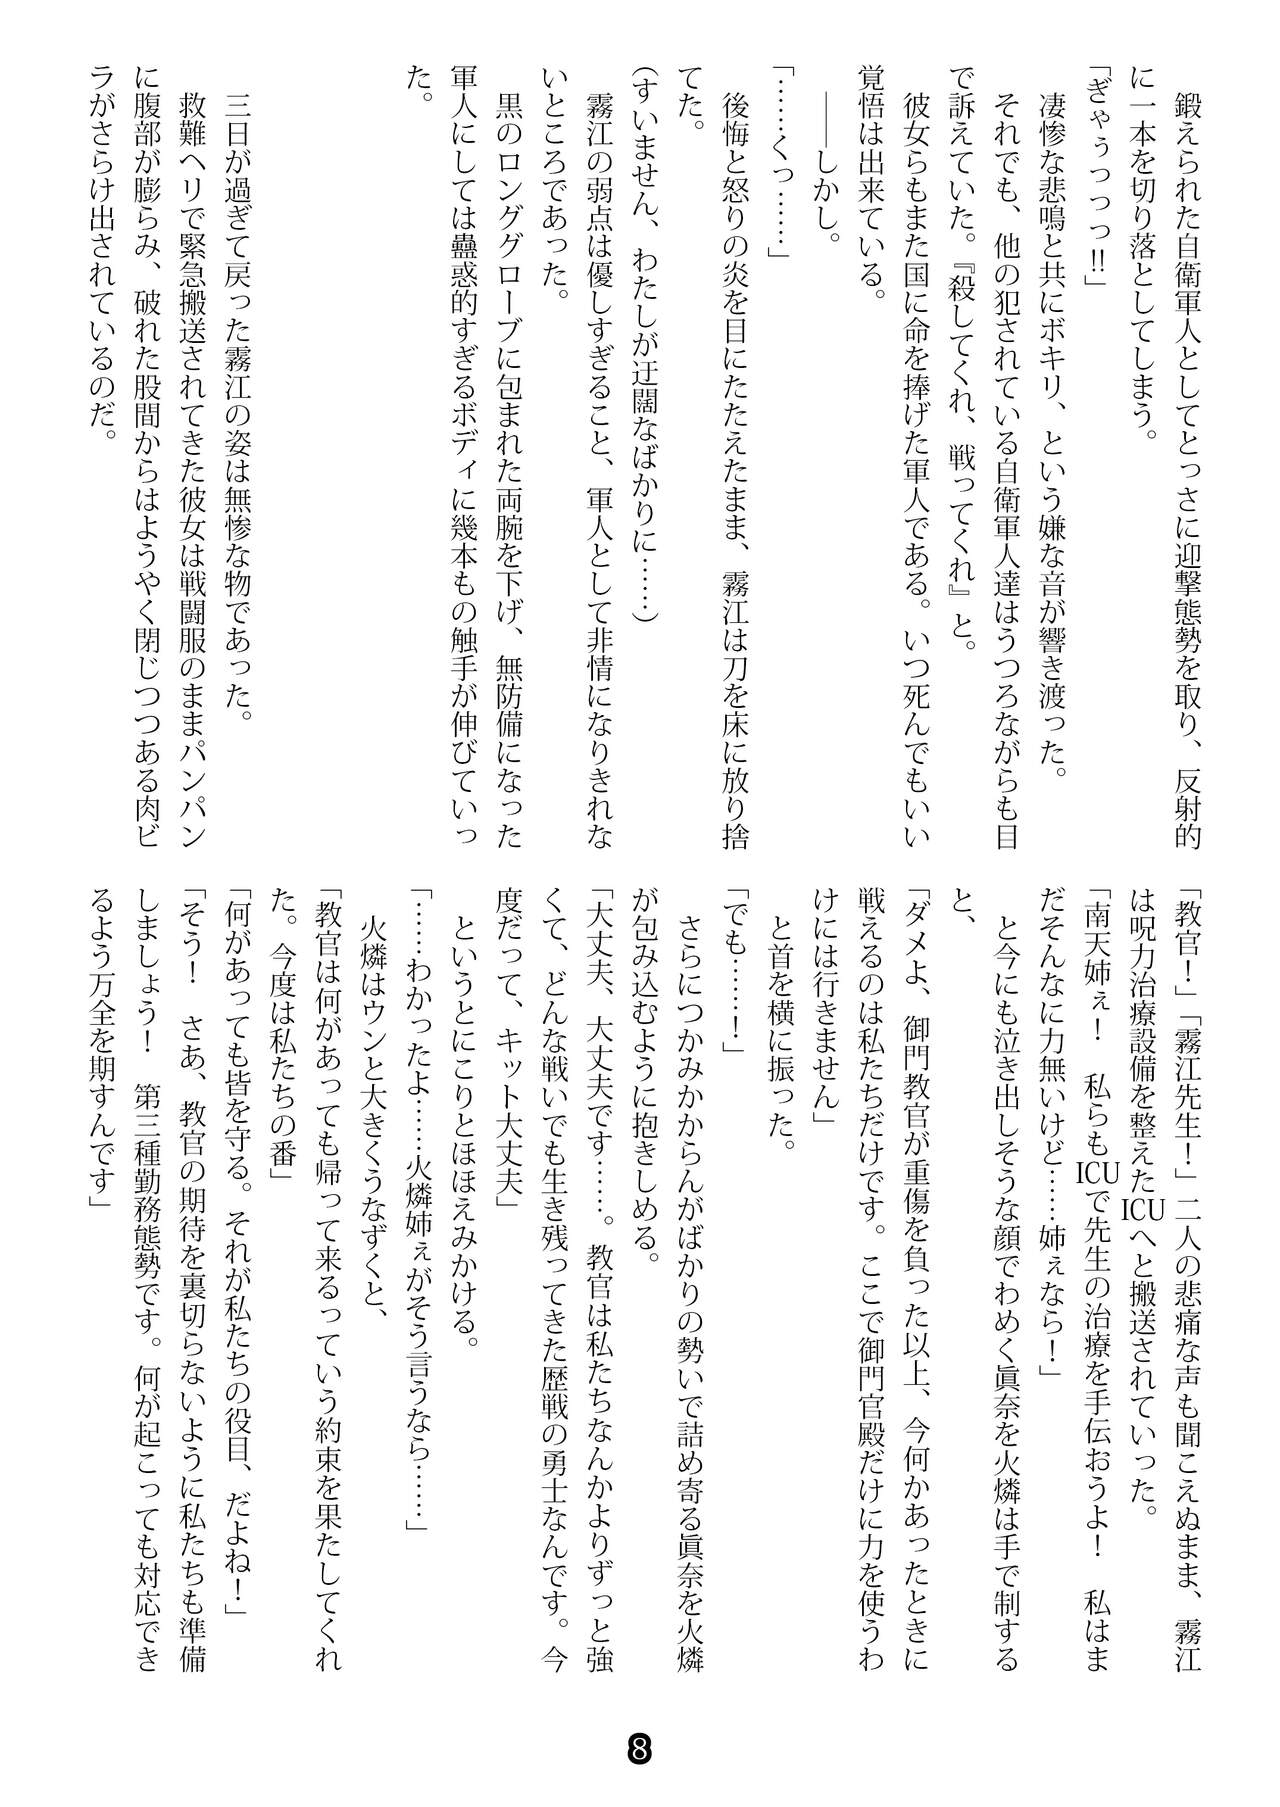 鍛えられた自衛軍人としてとっさに迎撃態勢を取り、反射的
に一本を切り落としてしまう。
「ぎゃぅっっっ!!」
　凄惨な悲鳴と共にボキリ、という嫌な音が響き渡った。
　それでも、他の犯されている自衛軍人達はうつろながらも目
で訴えていた。『殺してくれ、戦ってくれ』と。
　彼女らもまた国に命を捧げた軍人である。いつ死んでもいい
覚悟は出来ている。
　――しかし。
「……くっ……」
　後悔と怒りの炎を目にたたえたまま、霧江は刀を床に放り捨
てた。
(すいません、わたしが迂闊なばかりに……)
　霧江の弱点は優しすぎること、軍人として非情になりきれな
いところであった。
　黒のロンググローブに包まれた両腕を下げ、無防備になった
軍人にしては蠱惑的すぎるボディに幾本もの触手が伸びていっ
た。
　三日が過ぎて戻った霧江の姿は無惨な物であった。
　救難ヘリで緊急搬送されてきた彼女は戦闘服のままパンパン
に腹部が膨らみ、破れた股間からはようやく閉じつつある肉ビ
ラがさらけ出されているのだ。
「教官！」「霧江先生！」二人の悲痛な声も聞こえぬまま、霧江
は呪力治療設備を整えたICUへと搬送されていった。
「南天姉ぇ！　私らもICUで先生の治療を手伝おうよ！　私はま
だそんなに力無いけど……姉ぇなら！」
　と今にも泣き出しそうな顔でわめく眞奈を火燐は手で制する
と、
「ダメよ、御門教官が重傷を負った以上、今何かあったときに
戦えるのは私たちだけです。ここで御門官殿だけに力を使うわ
けには行きません」
　と首を横に振った。
「でも……！」
　さらにつかみかからんがばかりの勢いで詰め寄る眞奈を火燐
が包み込むように抱きしめる。
「大丈夫、大丈夫です……。教官は私たちなんかよりずっと強
くて、どんな戦いでも生き残ってきた歴戦の勇士なんです。今
度だって、キット大丈夫」
　というとにこりとほほえみかける。
「……わかったよ……火燐姉ぇがそう言うなら……」
　火燐はウンと大きくうなずくと、
「教官は何があっても帰って来るっていう約束を果たしてくれ
た。今度は私たちの番」
「何があっても皆を守る。それが私たちの役目、だよね！」
「そう！　さあ、教官の期待を裏切らないように私たちも準備
しましょう！　第三種勤務態勢です。何が起こっても対応でき
るよう万全を期すんです」
8